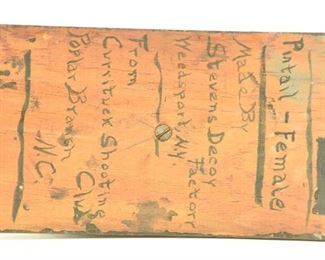 Pintail - Female
Made By
Stevens Decoy
Factory
Weedsport N.Y.
From
Currituck Shooting
Club
Poplar Branch
N.C.